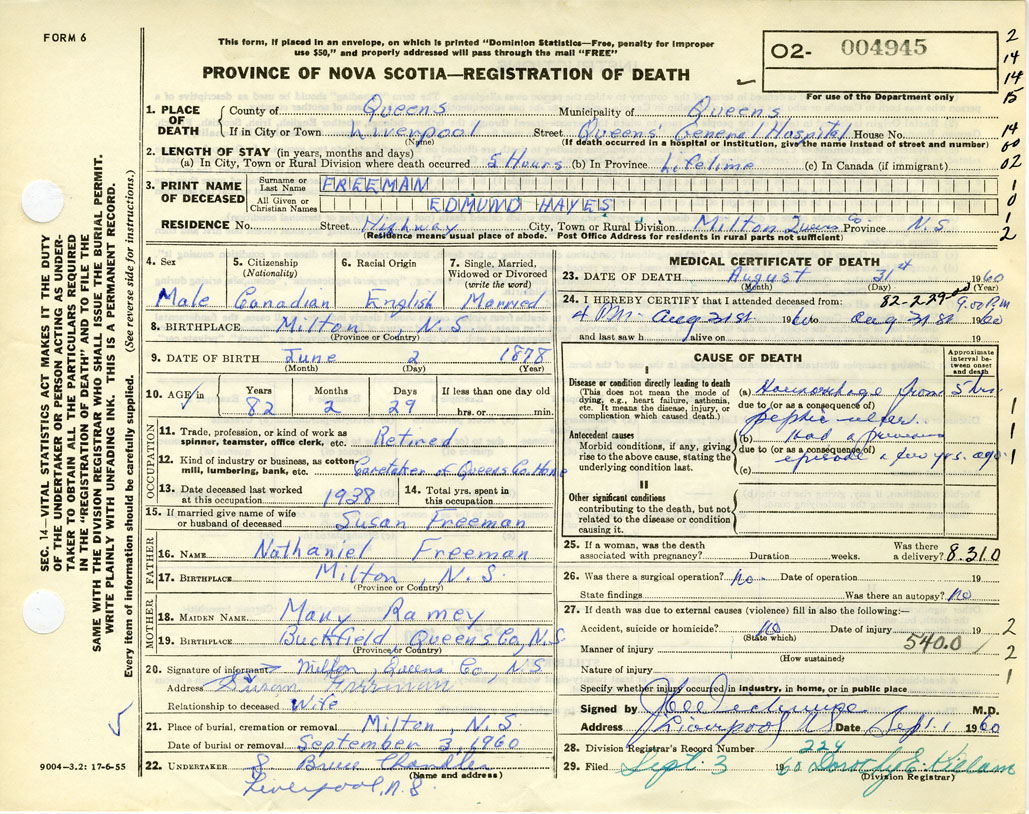 FORM 6
This form, if placed in an envelope, on which is printed "Dominion Statistics—Free, penalty for improper
use $50," and properly addressed will pass through the mail "FREE"
PROVINCE OF NOVA SCOTIA—REGISTRATION OF DEATH
O2- 004945
For use of the Department only
2
14
14
15
14
00
02
1
0
1
2
1. PLACE OF DEATH
County of Queens Municipality of Queens
If in City or Town Liverpool Street Queens' General Hospital House No.
(Name) (If death occurred in a hospital or Institution, give the name instead of street and number)
2. LENGTH OF STAY (in years, months and days)
(a) In City, Town or Rural Division where death occurred 5 Hours (b) In Province Lifetime (c) In Canada (if immigrant)
3. PRINT NAME OF DECEASED
Surname or Last Name FREEMAN
All Given or Christian Names EDMUND HAYES
RESIDENCE No. Street Highway City, Town or Rural Division Milton Queens Co Province N.S.
(Residence means usual place of abode. Post Office Address for residents in rural parts not sufficient)
4. Sex 5. Citizenship (Nationality) 6. Racial Origin 7. Single, Married, Widowed or Divorced (write the word)
Male Canadian English Married
8. BIRTHPLACE Milton, N.S.
(Province or Country)
9. DATE OF BIRTH June 2 1878
(Month) (Day) (Year)
10. AGE Years Months Days If less than one day old
82 2 29 hrs. or min.
OCCUPATION
11. Trade, profession, or kind of work as
spinner, teamster, office clerk, etc. Retired
12. Kind of industry or business, as cotton-
mill, lumbering, bank, etc. Caretaker of Queens Co. Home
13. Date deceased last worked
at this occupation. 1938
14. Total yrs. spent in
this occupation
15. If married give name of wife
or husband of deceased Susan Freeman
FATHER
16. NAME Nathaniel Freeman
17. BIRTHPLACE Milton, N.S.
(Province or Country)
MOTHER
18. MAIDEN NAME Mary Ramey
19. BIRTHPLACE Buckfield Queens Co, N.S
(Province or Country)
20. Signature of informant Milton, Queens Co, N.S
Address Susan Freeman
Relationship to deceased Wife
21. Place of burial, cremation or removal Milton, N.S.
Date of burial or removal September 3, 1960
22. UNDERTAKER Bruce Chandler
(Name and address)
Liverpool, N.S.
MEDICAL CERTIFICATE OF DEATH
23. DATE OF DEATH August 31st 1960
(Month) (Day) (Year)
24. I HEREBY CERTIFY that I attended deceased from: 82-2-29 9.00 P.M
4 P.M. Aug 31st 1960 to Aug 31st 1960
and last saw h alive on 19
CAUSE OF DEATH
Approximate interval between onset and death
I
Disease or condition directly leading to death
(This does not mean the mode of
dying, e.g., heart failure, asthenia,
etc. It means the disease, injury, or
complication which caused death.)
(a) Haemorrhage from 5 hrs.
due to (or as a consequence of)
peptic ulcer.
Antecedent causes
Morbid conditions, if any, giving
rise to the above cause, stating the
underlying condition last.
(b) had a previous
due to (or as a consequence of)
episode a few yrs. ago
(c)
1
1
1
II
Other significant conditions
contributing to the death, but not
related to the disease or condition
causing it.
25. If a woman, was the death
associated with pregnancy? Duration weeks. Was there
a delivery? 8.31.0
26. Was there a surgical operation? no Date of operation 19
State findings Was there an autopsy? no
27. If death was due to external causes (violence) fill in also the following:—
Accident, suicide or homicide? no Date of injury 19
(State which)
Manner of injury 540.0
(How sustained)
Nature of injury
Specify whether injury occurred in industry, in home, or in public place
2
2
1
Signed by M.D.
Address Liverpool NS Date Sept. 1 1960
28. Division Registrar's Record Number 224
29. Filed Sept. 3 1960 Dorothy E. Killam
(Division Registrar)
9004-3.2: 17-6-55
SEC. 14—VITAL STATISTICS ACT MAKES IT THE DUTY
OF THE UNDERTAKER OR PERSON ACTING AS UNDER-
TAKER TO OBTAIN ALL THE PARTICULARS REQUIRED
IN THE "REGISTRATION OF DEATH" AND TO FILE THE
SAME WITH THE DIVISION REGISTRAR WHO SHALL ISSUE THE BURIAL PERMIT.
WRITE PLAINLY WITH UNFADING INK. THIS IS A PERMANENT RECORD.
Every item of information should be carefully supplied. (See reverse side for instructions.)